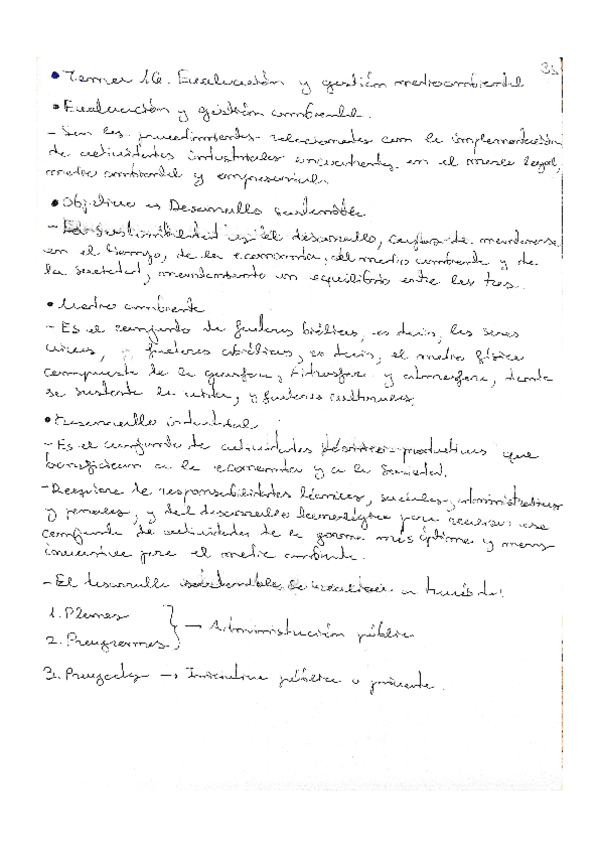 35
• Tema 16. Evaluación y gestión medioambiental
• Evaluación y gestión ambiental.
- Son los procedimientos relacionados con la implementación
de actividades industriales en el marco legal,
medio ambiental y empresarial.
• Objetivo es Desarrollo sostenible
- La sostenibilidad es el desarrollo, capaz de mantenerse
en el tiempo, de la economía, del medio ambiente y de
la sociedad, manteniendo un equilibrio entre los tres.
• Medio ambiente
- Es el conjunto de factores bióticos, es decir, los seres
vivos, y factores abióticos, es decir, el medio físico
compuesto de la geosfera, hidrosfera y atmosfera, donde
se sustenta la vida, y factores culturales.
• Desarrollo industrial
- Es el conjunto de actividades productivas que
benefician a la economía y a la sociedad.
- Requiere de responsabilidades técnicas, sociales, administrativas
y penales, y del desarrollo tecnológico para realizar ese
conjunto de actividades de la forma más óptima y menos
para el medio ambiente.
- El desarrollo sostenible se realiza a través de:
1. Planes
2. Programas → Administración pública
3. Proyectos → Iniciativa pública o privada.